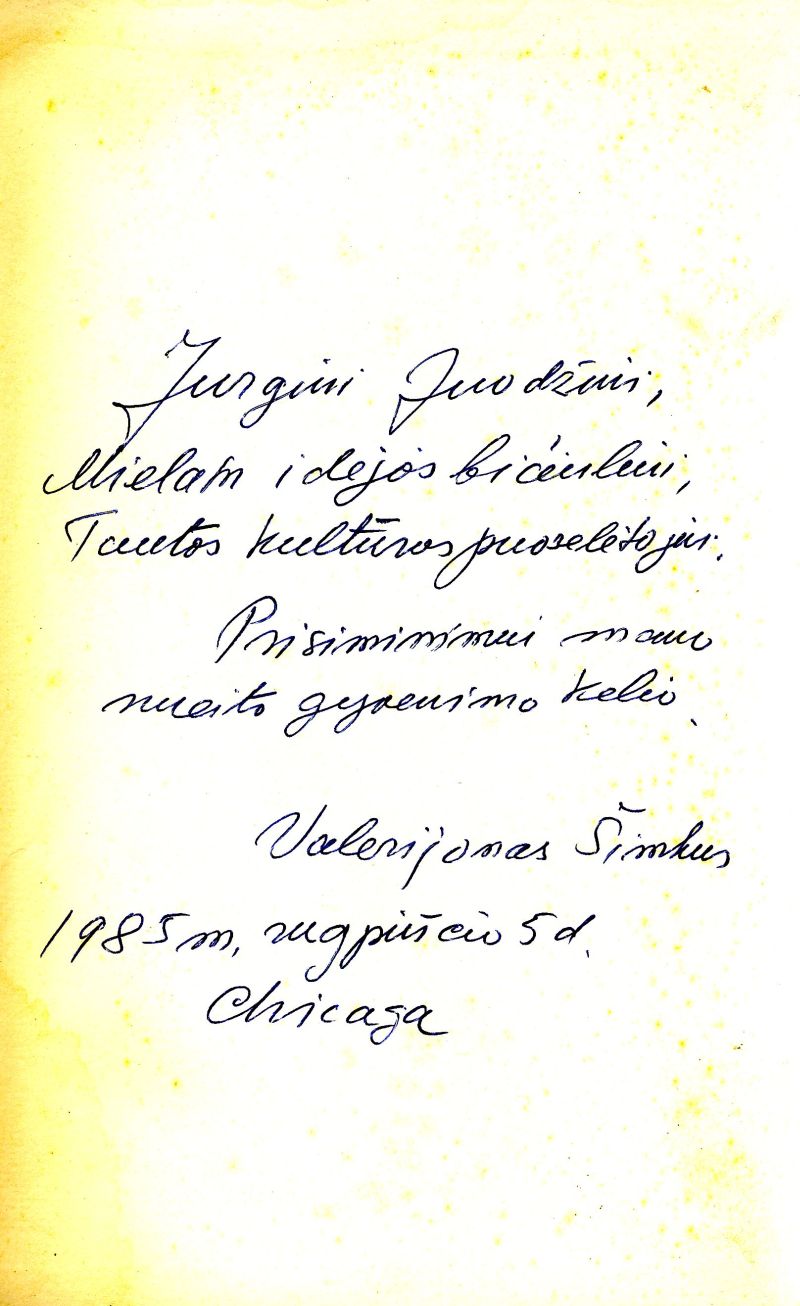 Jurgini Juodžiui,
Mielam idėjos bičiuliui,
Tautos kultūros puoselėtojui.
Prisiminimui mano
nueito gyvenimo kelio.
Valerijonas Šimkus
1985 m, rugpiūčio 5 d.
Chicaga